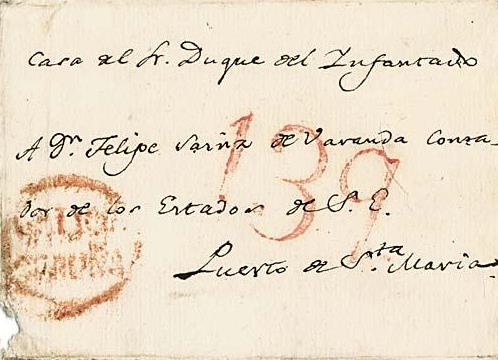 Casa del Sr. Duque del Infantado
A Dn. Felipe Sainz de Varanda Conta-
dor de los Estados de S. E.
Puerto de Sta. Maria
139